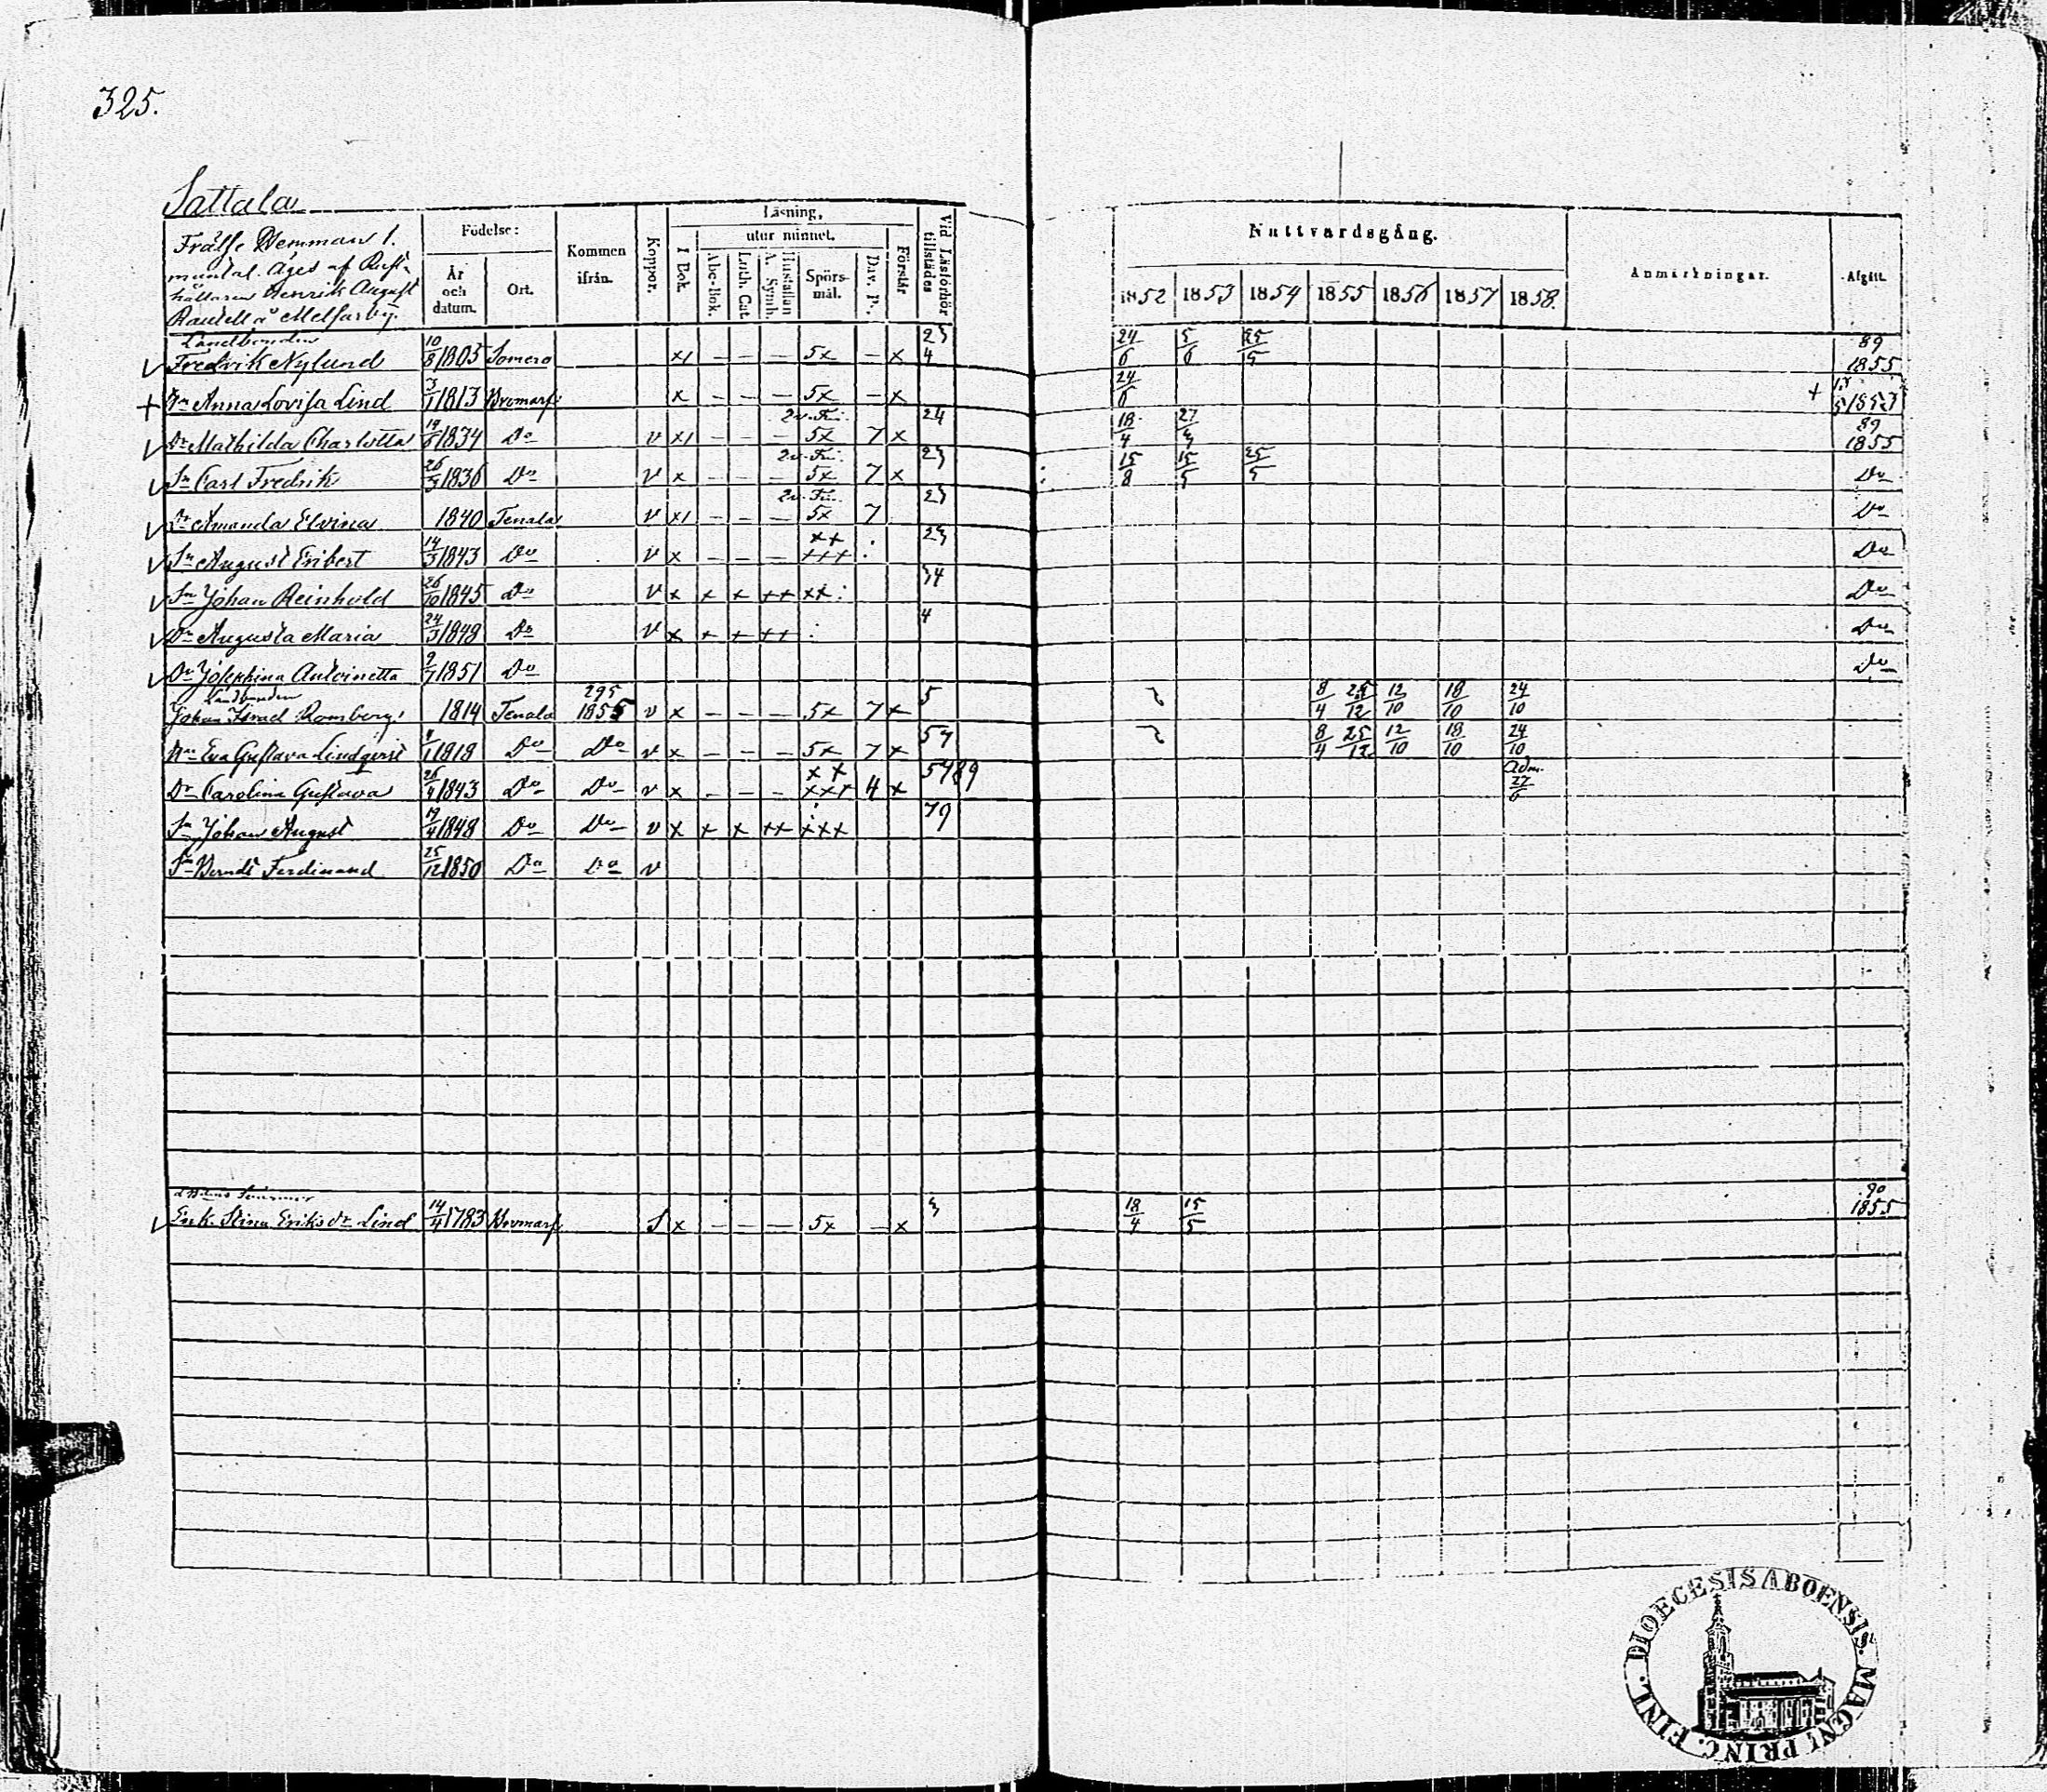 325.
Sattala
Frälse Hemman 1.
mantal. Äges af Rust-
hållaren Henrik August
å Melfarby.
Födelse:
År och datum.
Ort.
Kommen ifrån.
Koppor.
Läsning,
I Bok.
utur minnet.
Abc-Bok.
Luth. Cat.
Hustaflan A. Symb.
Spörs-mål.
Dav. P.
Förstår
Vid Läsförhör tillstädes
Nattvardsgång.
1852 1853 1854 1855 1856 1857 1858.
Anmärkningar.
Afgått.
Landbonden
√ Fredrik Nylund 10/8 1805 Somero x1 – – – 5x – x 23 4 24/6 5/6 25/5 89 1855
+ Hu Anna Lovisa Lind 3/1 1813 Bromarf x – – – 5x – x 24/6 + 1853
√ Dr Mathilda Charlotta 19/6 1834 Do v x1 – – – 5x 7 x 24 18/4 89 1855
√ Sn Carl Fredrik 26/3 1836 Do v x – – – 5x 7 x 23 15/8 15/5 25/5 Do
√ Dr Amanda Elvina 1840 Tenala v x1 – – – 5x 7 23 Do
√ Sn August Eribert 14/3 1843 Do v x – – – xx xxx 23 Do
√ Sn Johan Reinhold 26/10 1845 Do v x x x xx xx: 34 Do
√ Dr Augusta Maria 24/3 1849 Do v x + + ++ : 4 Do
√ Dr Josephina Antoinetta 9/7 1851 Do Do
Landbonden
Johan Israel Romberg 1814 Tenala 295 1855 v x – – – 5x 7 x 5 8/4 25/12 12/10 18/10 24/10
Hu Eva Gustava Lindqvist 1818 Do Do v x – – – 5x 7 x 57 8/4 25/12 12/10 18/10 24/10
Dr Carolina Gustava 26/4 1843 Do Do v x – – – xx xxx 4 x 5789 adm. 27/6
Sn Johan August 19/4 1848 Do Do v x x x xx xxx 79
Sn Berndt Ferdinand 25/12 1850 Do Do v
√ Enk. Stina Eriksdr Lind 14/4 1783 Bromarf S x – – – 5x – x 3 18/4 15/5 90 1855
DIOECESIS ABOENSIS. MAGNI PRINC. FINL.